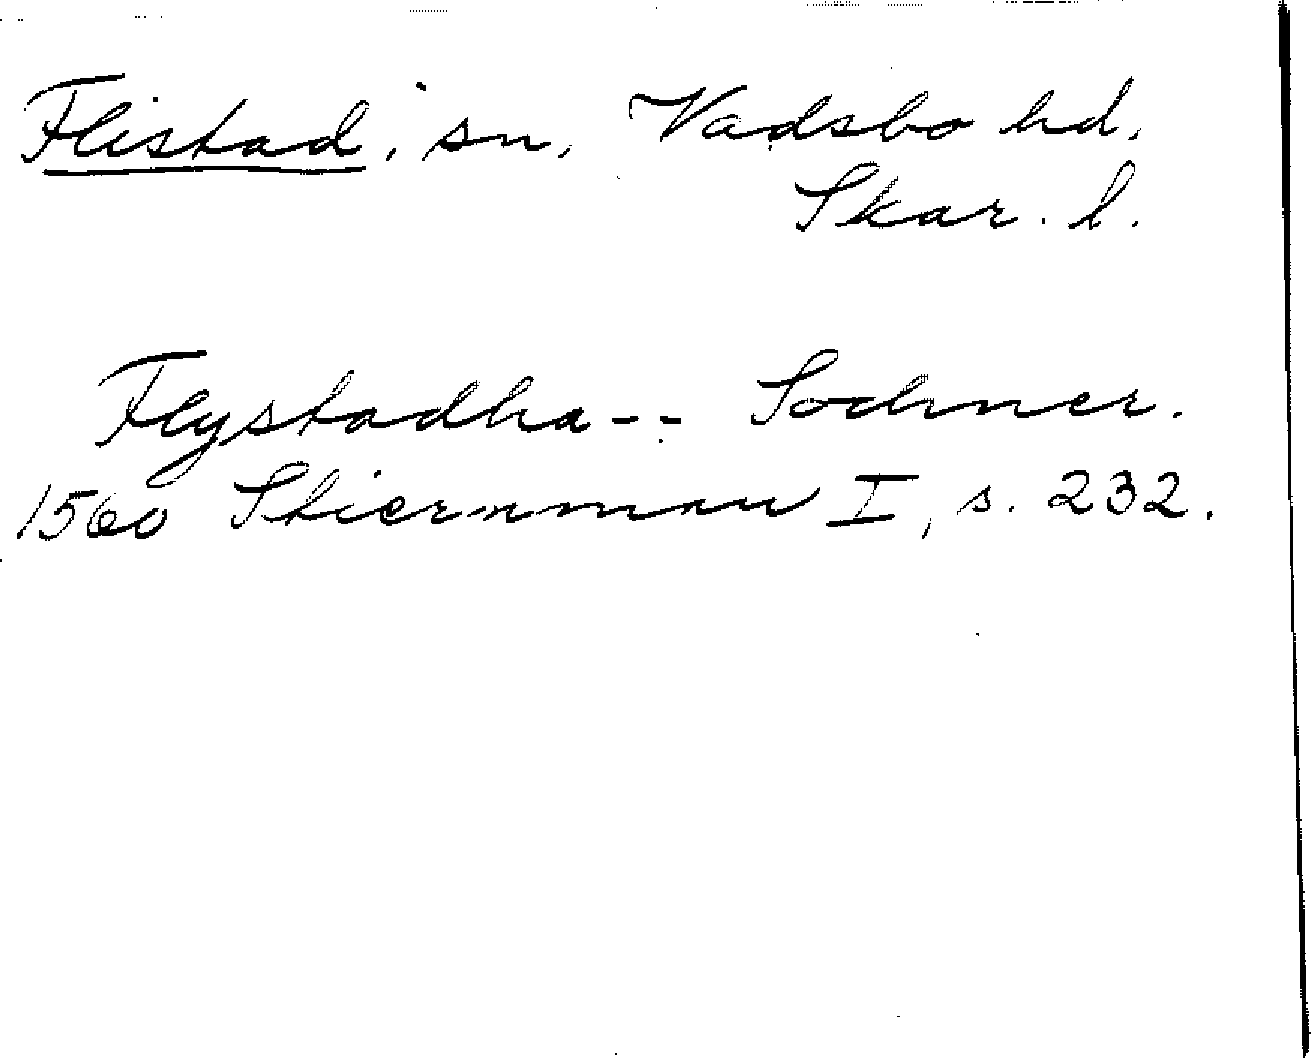 Flistad, sn, Vadsbo hd.
Skar. l.
Flystadha -- Sochner.
1560 Stiernman I, s. 232.